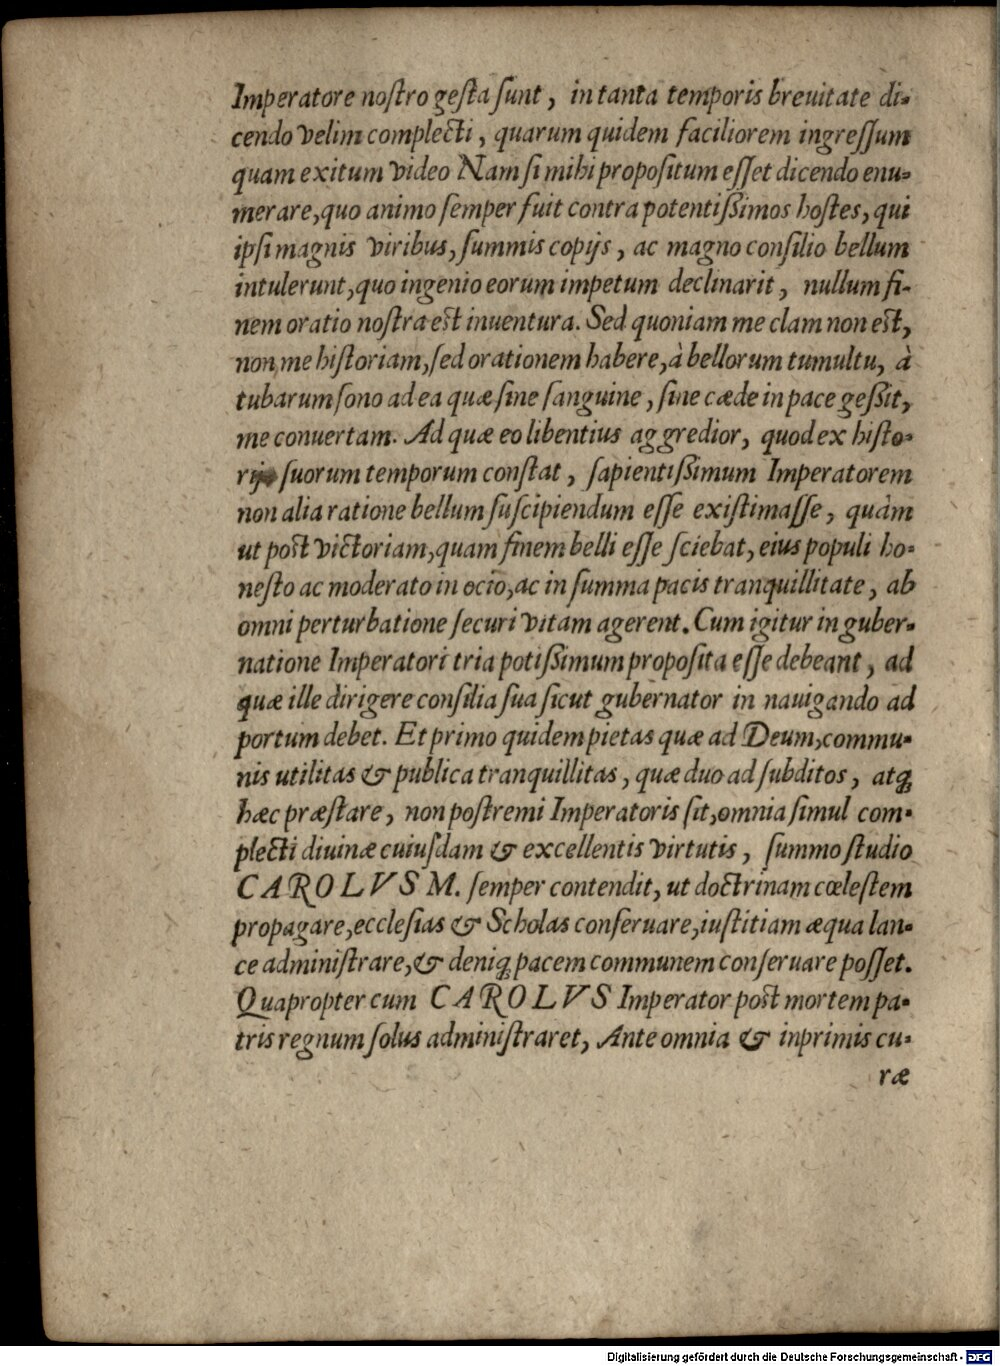 Imperatore noſtro geſta ſunt, in tanta temporis breuitate di-
cendo velim complecti, quarum quidem faciliorem ingreſſum
quam exitum video Nam ſi mihi propoſitum eſſet dicendo enu-
merare, quo animo ſemper fuit contra potentißimos hoſtes, qui
ipſi magnis viribus, ſummis copijs, ac magno conſilio bellum
intulerunt, quo ingenio eorum impetum declinarit, nullum fi-
nem oratio noſtra eſt inuentura. Sed quoniam me clam non eſt,
non me hiſtoriam, ſed orationem habere, à bellorum tumultu, à
tubarum ſono ad ea quæ ſine ſanguine, ſine cæde in pace geßit,
me conuertam. Ad quæ eo libentius aggredior, quod ex hiſto-
rijs ſuorum temporum conſtat, ſapientißimum Imperatorem
non alia ratione bellum ſuſcipiendum eſſe exiſtimaſſe, quàm
ut poſt victoriam, quam finem belli eſſe ſciebat, eius populi ho-
neſto ac moderato in ocio, ac in ſumma pacis tranquillitate, ab
omni perturbatione ſecuri vitam agerent. Cum igitur in guber-
natione Imperatori tria potißimum propoſita eſſe debeant, ad
quæ ille dirigere conſilia ſua ſicut gubernator in nauigando ad
portum debet. Et primo quidem pietas quæ ad Deum, commu-
nis utilitas & publica tranquillitas, quæ duo ad ſubditos, atq́;
hæc præſtare, non poſtremi Imperatoris ſit, omnia ſimul com-
plecti diuinæ cuiuſdam & excellentis virtutis, ſummo ſtudio
CAROLVS M. ſemper contendit, ut doctrinam cœleſtem
propagare, eccleſias & Scholas conſeruare, iuſtitiam æqua lan-
ce adminiſtrare, & deniq́; pacem communem conſeruare poſſet.
Quapropter cum CAROLVS Imperator poſt mortem pa-
tris regnum ſolus adminiſtraret, Ante omnia & inprimis cu-
ræ
Digitalisierung gefördert durch die Deutsche Forschungsgemeinschaft - DFG